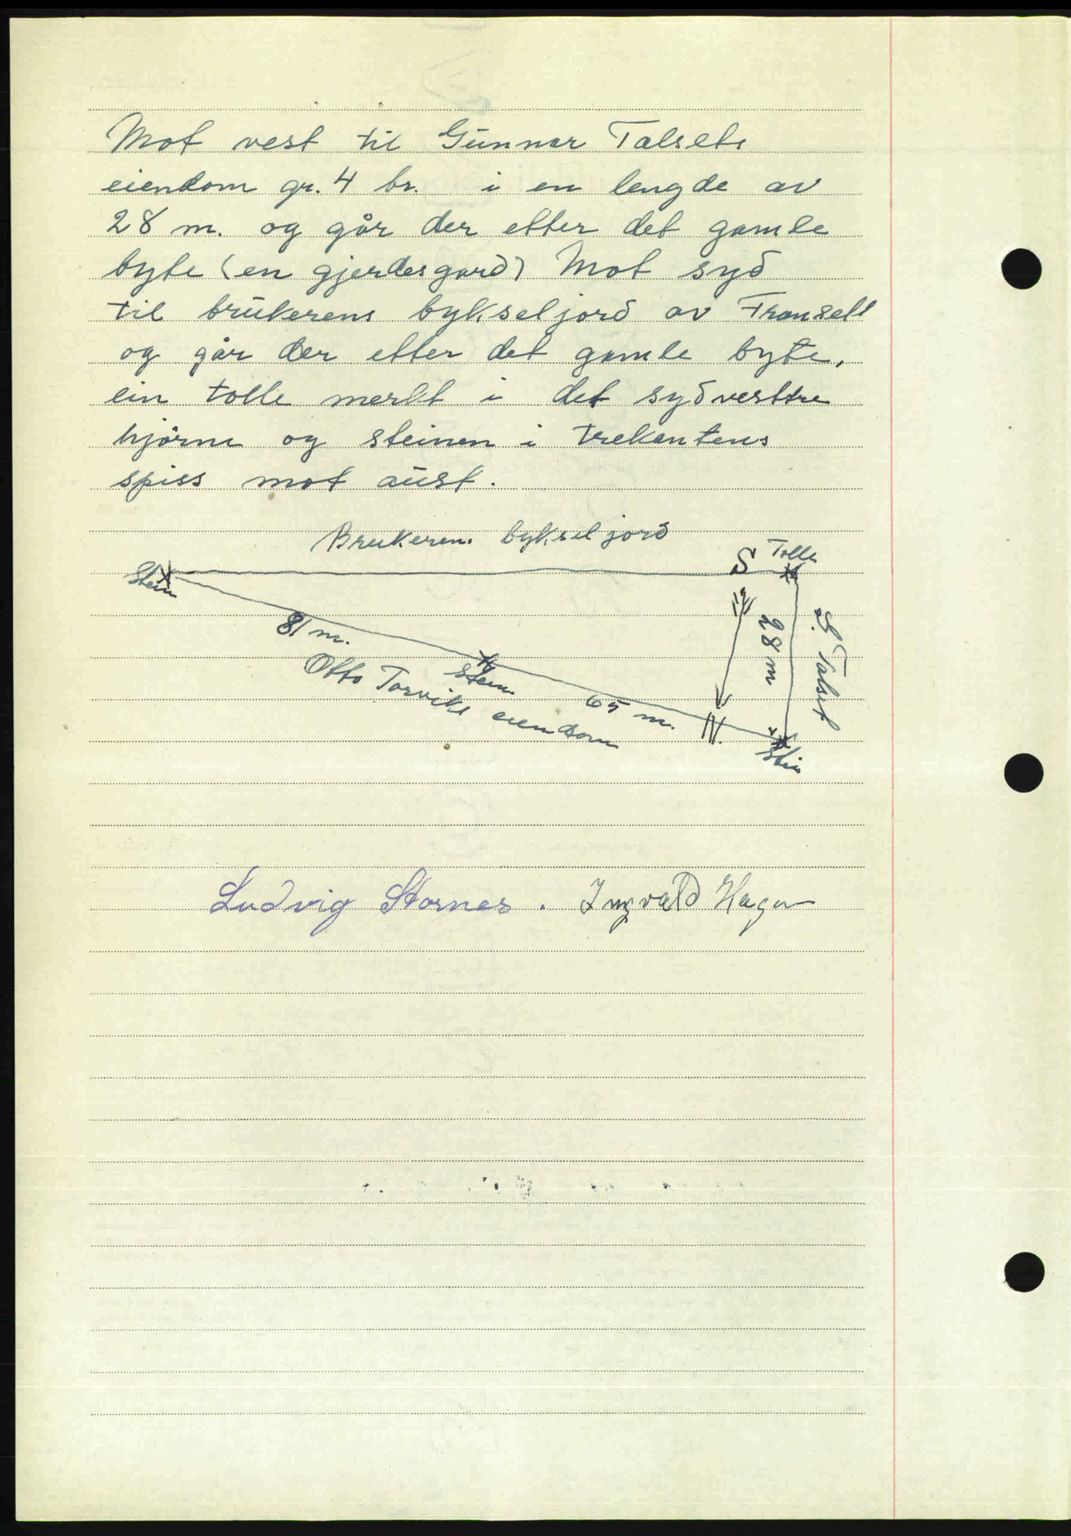 Mot vest til Gunnar Talsets
eiendom gr. 4 br. i en lengde av
28 m. og går der etter det gamle
byte (en gjerdesgard) Mot syd
til brukerens bykseljord av Fransett
og går der etter det gamle byte,
ein tolle merkt i det sydvesttre
hjörne og steinen i trekantens
spiss mot aust.
Brukeren. bykseljord
S Tolle
Stein
81 m.
28 m
G. Talset
Otto Torviks eiendom
Stein
65 m.
N.
Stein
Ludvig Stornes. Ingvald Hagen